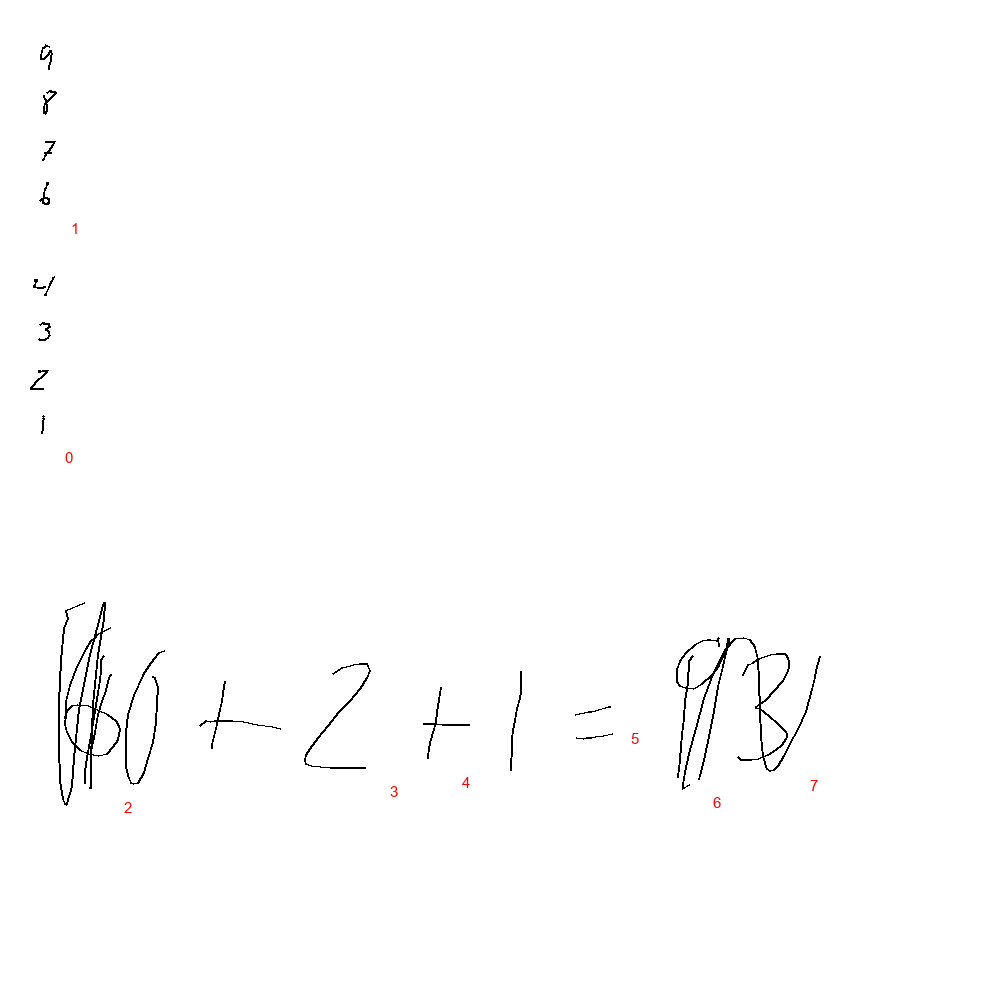 9
8
7
6
1
4
3
2
1
0
0 + 2 + 1 = 3
2 3 4 5 6 7